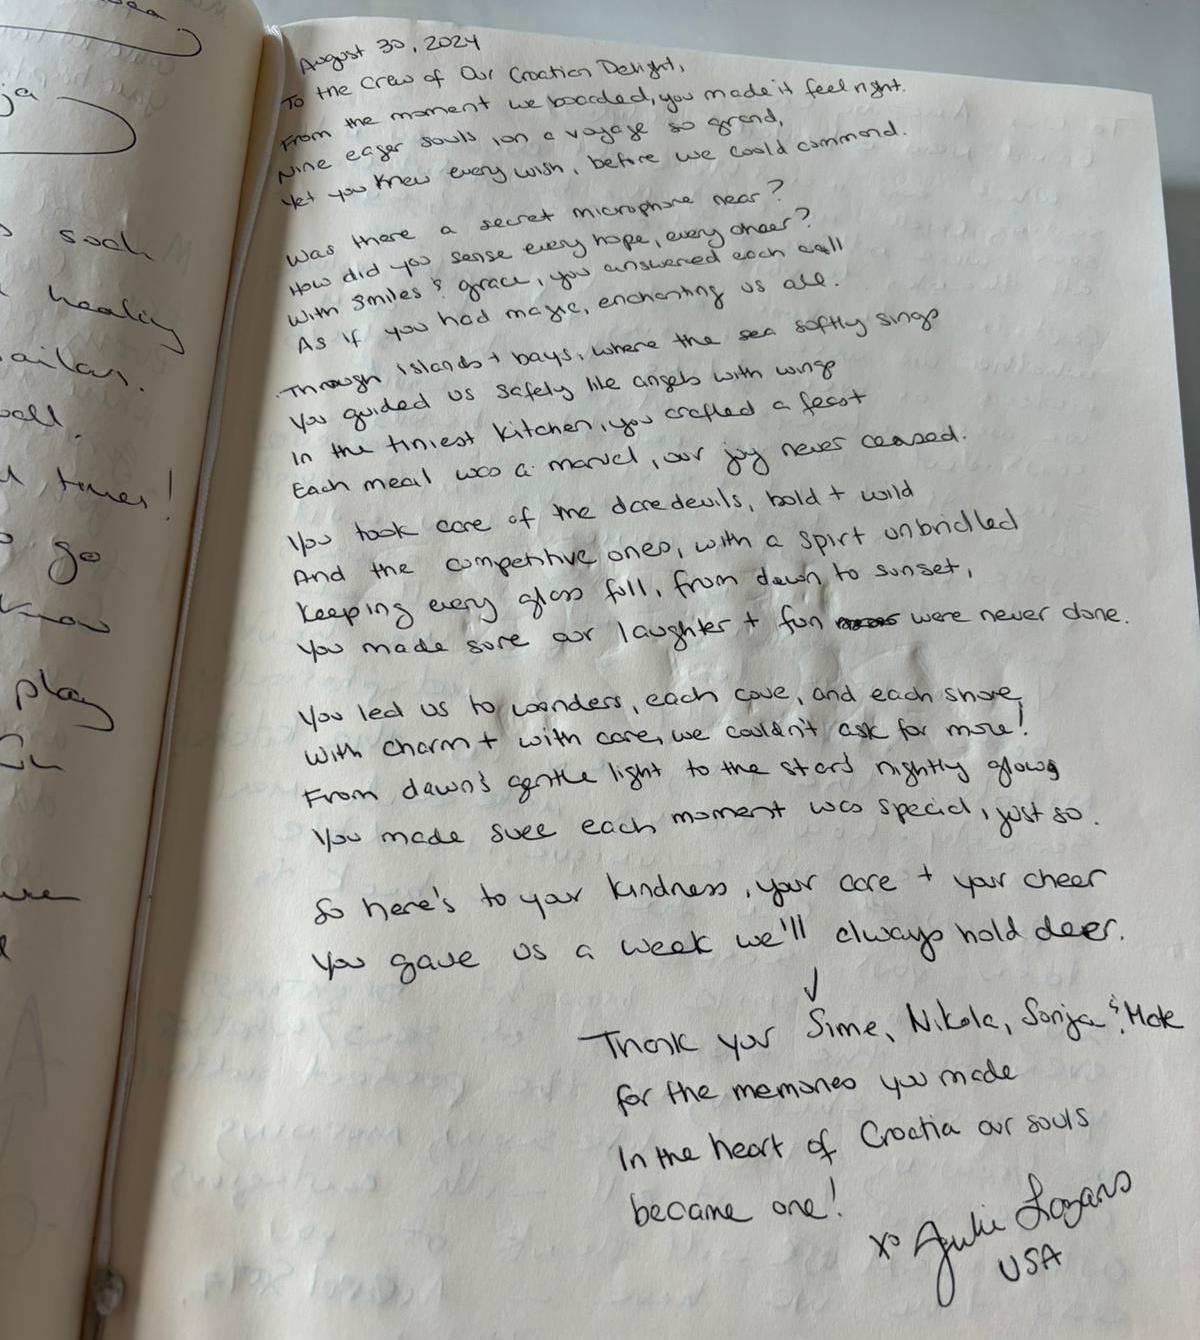 August 30, 2024
To the Crew of Our Croatian Delight,
From the moment we boarded, you made it feel right.
Nine eager souls, on a voyage so grand,
Yet you knew every wish, before we could command.
Was there a secret microphone near?
How did you sense every hope, every cheer?
With smiles & grace, you answered each call
As if you had magic, enchanting us all.
Through islands + bays, where the sea softly sings
You guided us safely like angels with wings
In the tiniest kitchen, you crafted a feast
Each meal was a marvel, our joy never ceased.
You took care of the daredevils, bold + wild
And the competitive ones, with a spirt unbridled
Keeping every glass full, from dawn to sunset,
You made sure our laughter + fun were never done.
You led us to wonders, each cove, and each shore,
With charm + with care, we couldn't ask for more!
From dawn's gentle light to the stars nightly glows
You made suee each moment was special, just so.
So here's to your kindness, your care + your cheer
You gave us a week we'll always hold deer.
Thank you Sime, Nikola, Sonja & Mate
for the memories you made
In the heart of Croatia our souls
became one!
xo Julie Lozano
USA
such
healing
sailors.
well.
times!
go
know
play